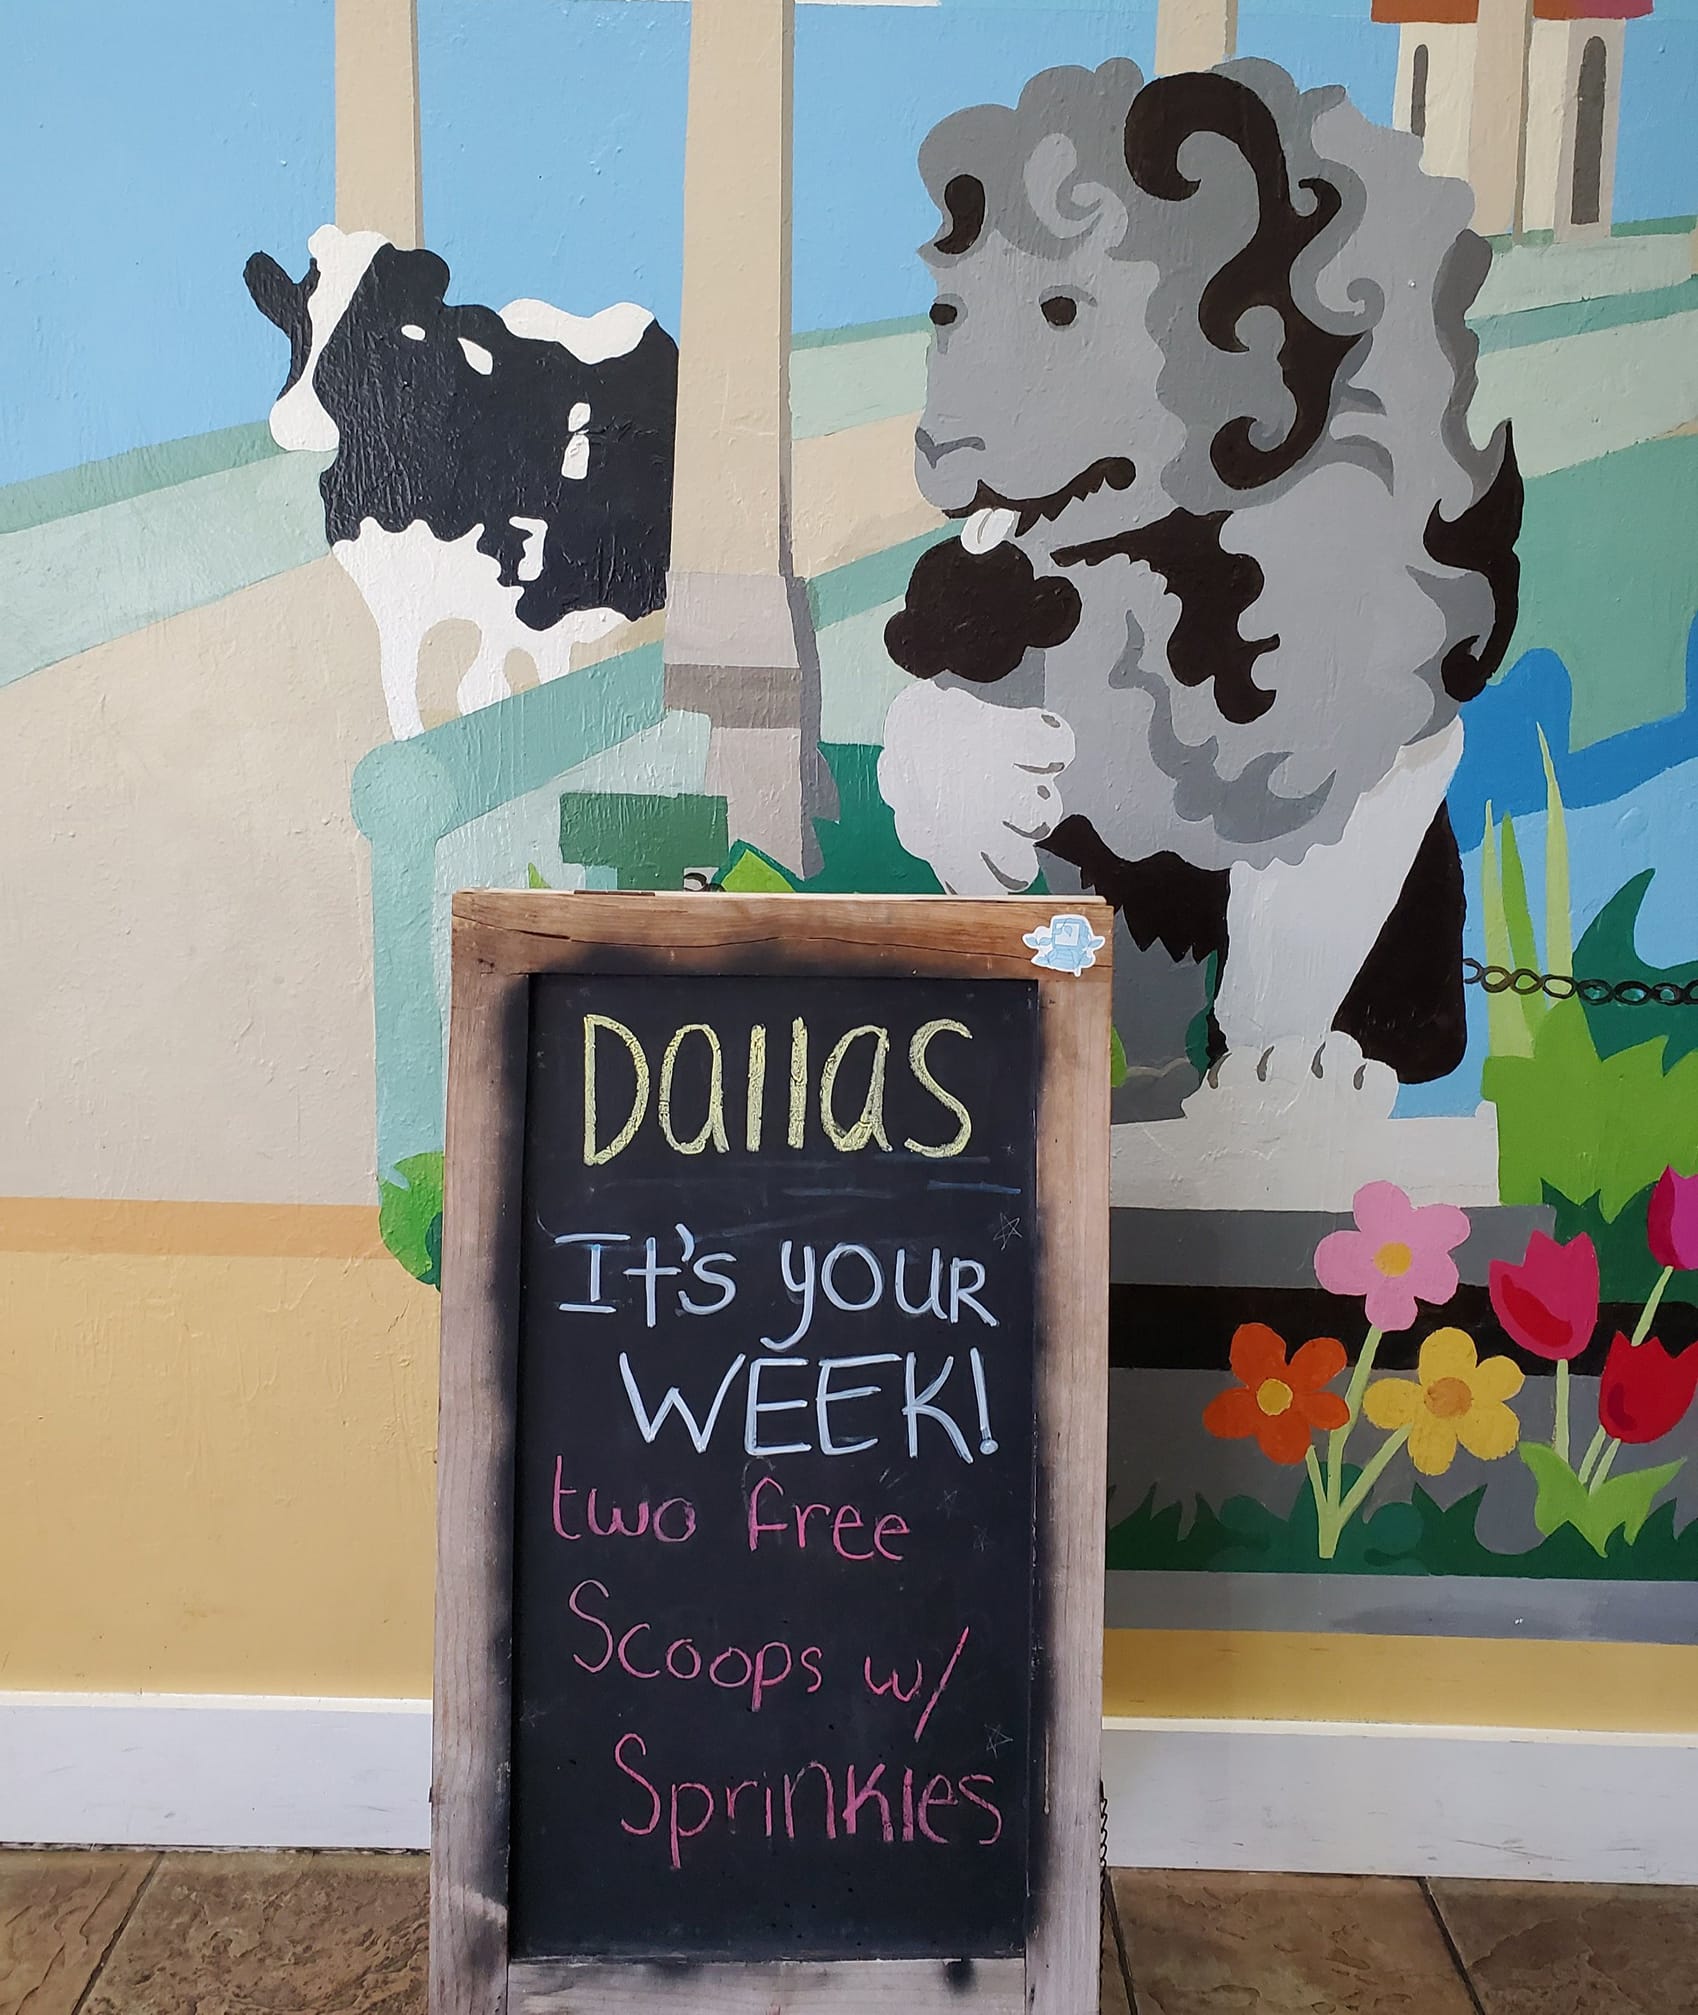 Dallas
It's your
WEEK!
two free
Scoops w/
Sprinkles